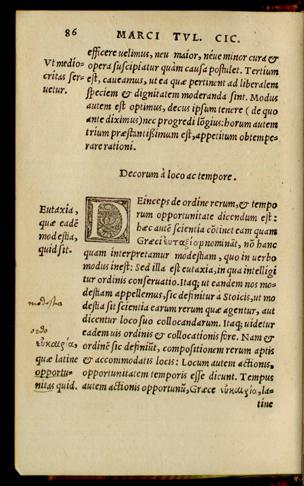 86 MARCI TVL. CIC.
efficere uelimus, neu maior, néue minor cura &
opera suscipiatur quàm causa postulet. Tertium
est, caueamus, ut ea quæ pertinent ad liberalem
speciem & dignitatem moderanda sint. Modus
autem est optimus, decus ipsum tenere (de quo
ante diximus) nec progredi lōgius: horum autem
trium præstantißimum est, appetitum obtempe-
rare rationi.
Vt medio-
critas ser-
uetur.
Decorum à loco ac tempore.
DEinceps de ordine rerum, & tempo
rum opportunitate dicendum est:
hæc autē scientia cōtinet eam quam
Græci ἐυταξίαν nomināt, nō hanc
quam interpretamur modestiam, quo in uerbo
modus inest: Sed illa est eutaxia, in qua intelligi
tur ordinis conseruatio. Itaq; ut eandem nos mo-
destiam appellemus, sic definitur à Stoicis, ut mo
destia sit scientia earum rerum quæ agentur, aut
dicentur loco suo collocandarum. Itaq; uidetur
eadem uis ordinis & collocationis fore. Nam &
ordinē sic definiūt, compositionem rerum aptis
& accommodatis locis: Locum autem actionis,
opportunitatem temporis esse dicunt. Tempus
autem actionis opportunū, Græce εὐκαιρία, la-
tine
Eutaxia,
quæ eadē
modestia,
quid sit.
modestia
ordo
εὐκαιρία
quæ latine
opportu-
nitas quid.